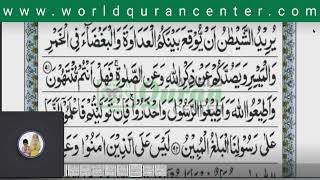 www.worldqurancenter.com
يُرِيْدُ الشَّيْطٰنُ اَنْ يُّوْقِعَ بَيْنَكُمُ الْعَدَاوَةَ وَالْبَغْضَآءَ فِى الْخَمْرِ
وَالْمَيْسِرِ وَيَصُدَّكُمْ عَنْ ذِكْرِ اللّٰهِ وَعَنِ الصَّلٰوةِ ۚ فَهَلْ اَنْتُمْ مُّنْتَهُوْنَ
وَاَطِيْعُوا اللّٰهَ وَاَطِيْعُوا الرَّسُوْلَ وَاحْذَرُوْا ۚ فَاِنْ تَوَلَّيْتُمْ فَاعْلَمُوْٓا اَنَّمَا
عَلٰى رَسُوْلِنَا الْبَلٰغُ الْمُبِيْنُ ۝ لَيْسَ عَلَى الَّذِيْنَ اٰمَنُوْا وَعَمِلُوا